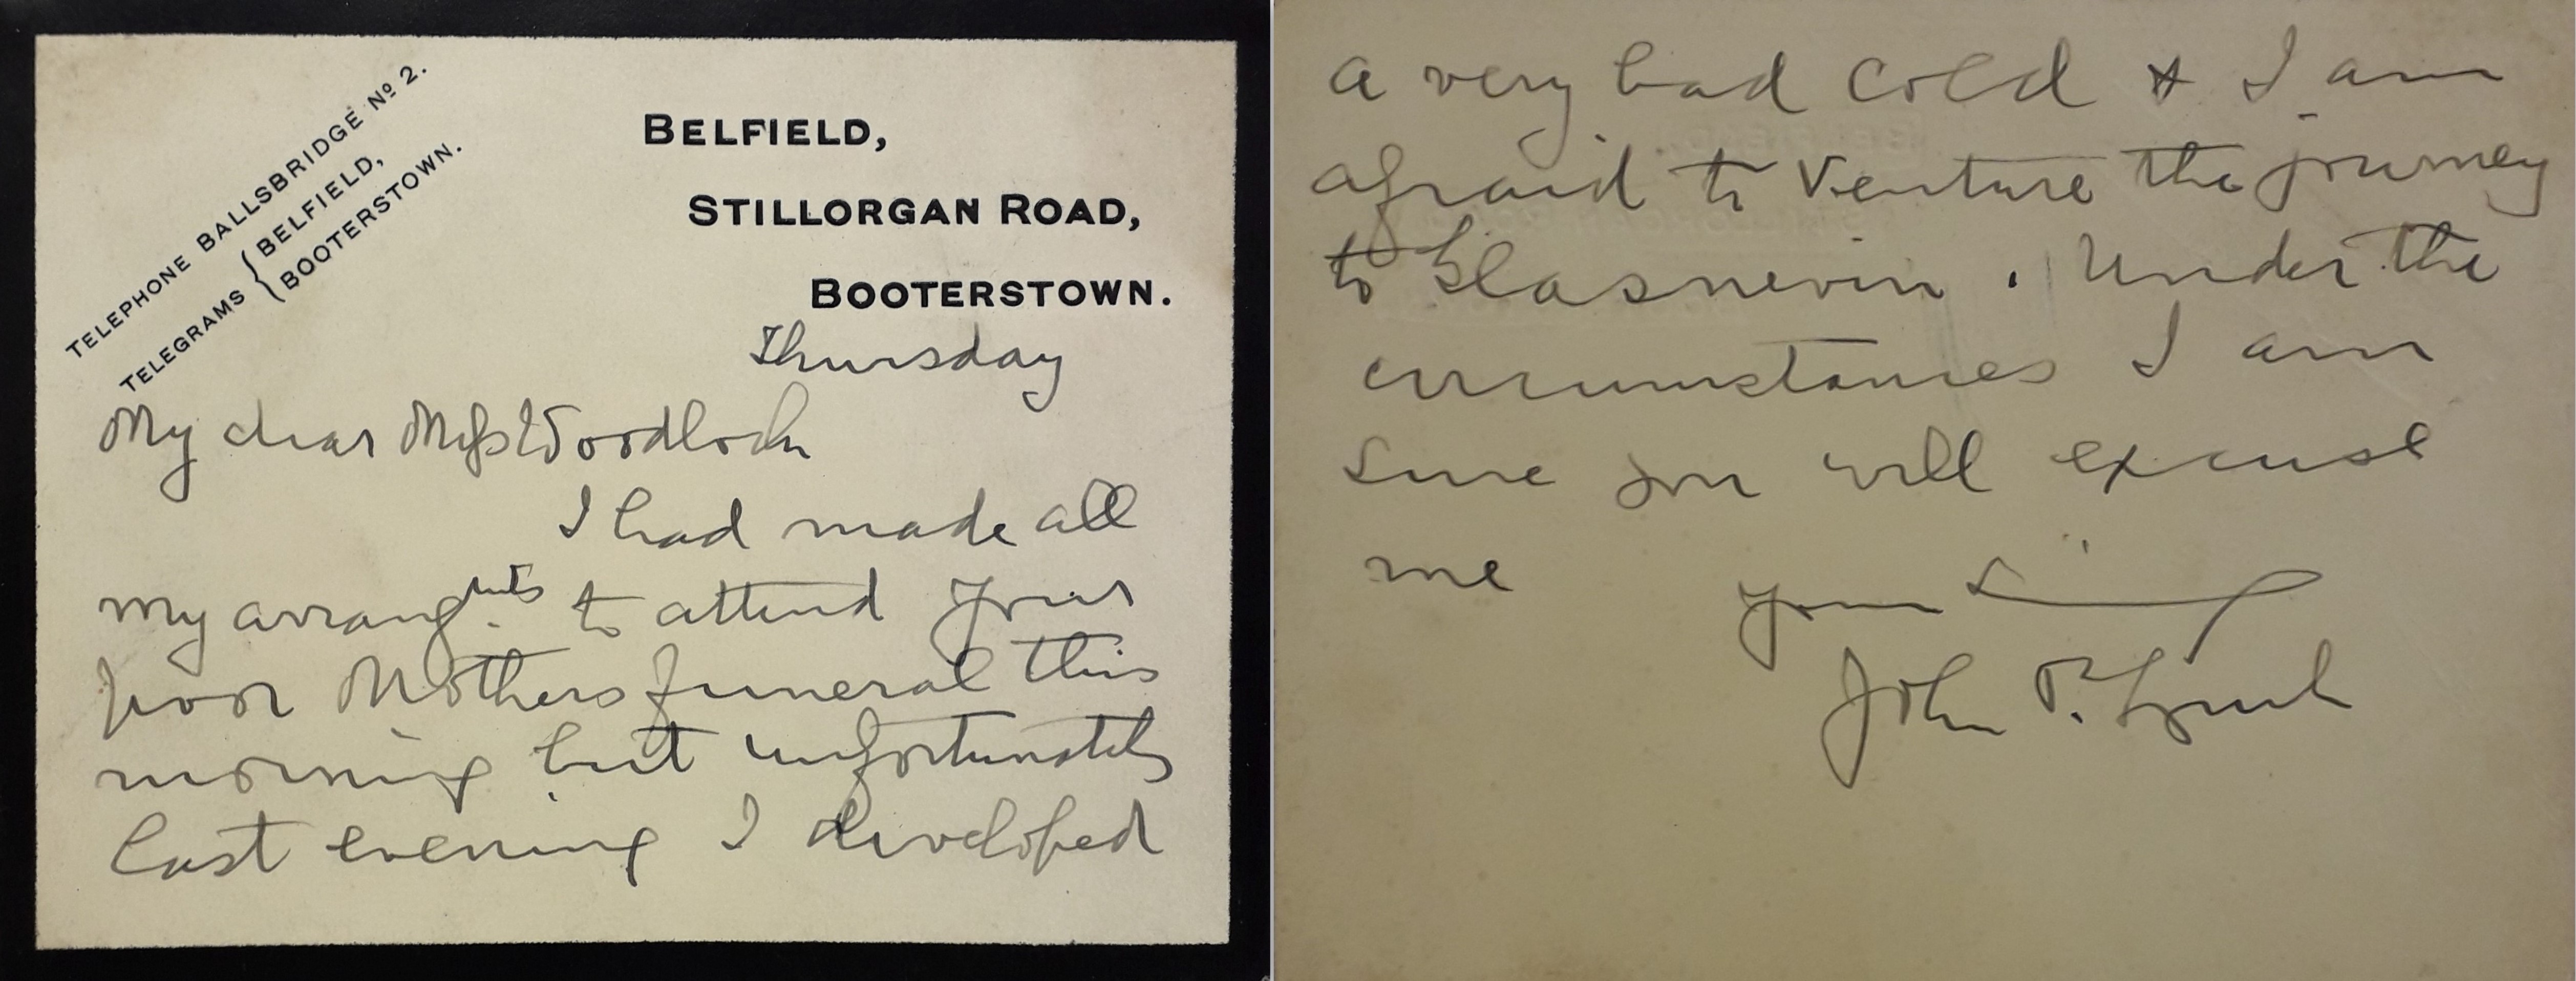 TELEPHONE BALLSBRIDGE Nº 2.
TELEGRAMS { BELFIELD,
BOOTERSTOWN.
BELFIELD,
STILLORGAN ROAD,
BOOTERSTOWN.
Thursday
My dear Miss Woodlock
I had made all
my arrangmts to attend your
poor Mothers funeral this
morning but unfortunately
last evening I developed
a very bad cold & I am
afraid to venture the journey
to Glasnevin. Under the
circumstances I am
sure you will excuse
me
yours Sincerely
John P. Lynch